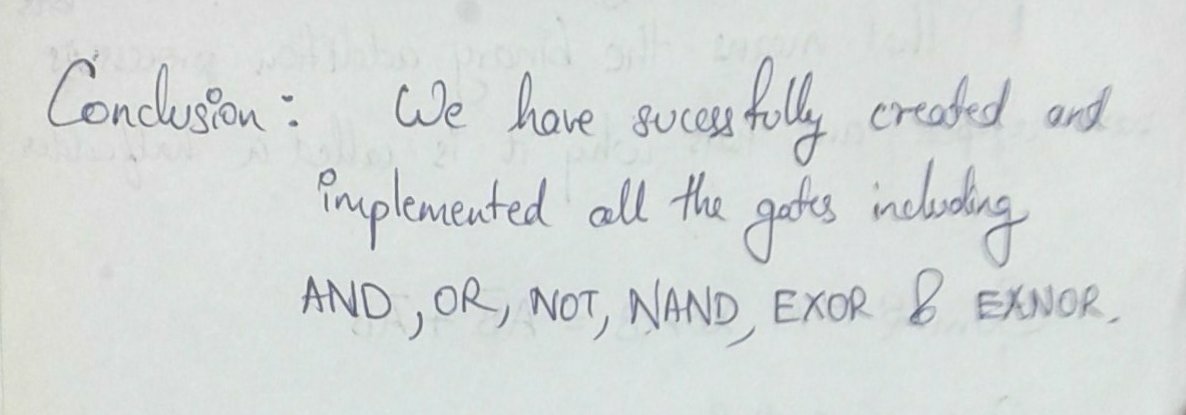 Conclusion: We have sucessfully created and
implemented all the gates including
AND, OR, NOT, NAND, EXOR & EXNOR.